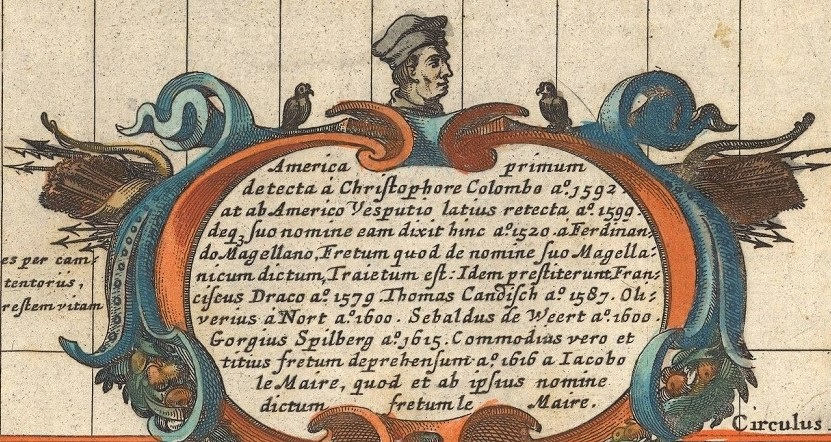 America primum
detecta á Christophore Colombo aº. 1592.
at ab Americo Vesputio latius retecta aº. 1599.
deq₃ suo nomine eam dixit hinc aº. 1520. a Ferdinan/
do Magellano, Fretum quod de nomine suo Magella/
nicum dictum, Traietum est: Idem prestiterunt Fran/
ciscus Draco aº. 1579. Thomas Candisch aº. 1587. Oli/
verius á Nort aº. 1600. Sebaldus de Weert aº. 1600.
Gorgius Spilberg aº. 1615. Commodius vero et
titius fretum deprehensum aº. 1616 a Iacobo
le Maire, quod et ab ipsius nomine
dictum fretum le Maire.
es per cam/
tentorijs,
restem vitam
Circulus